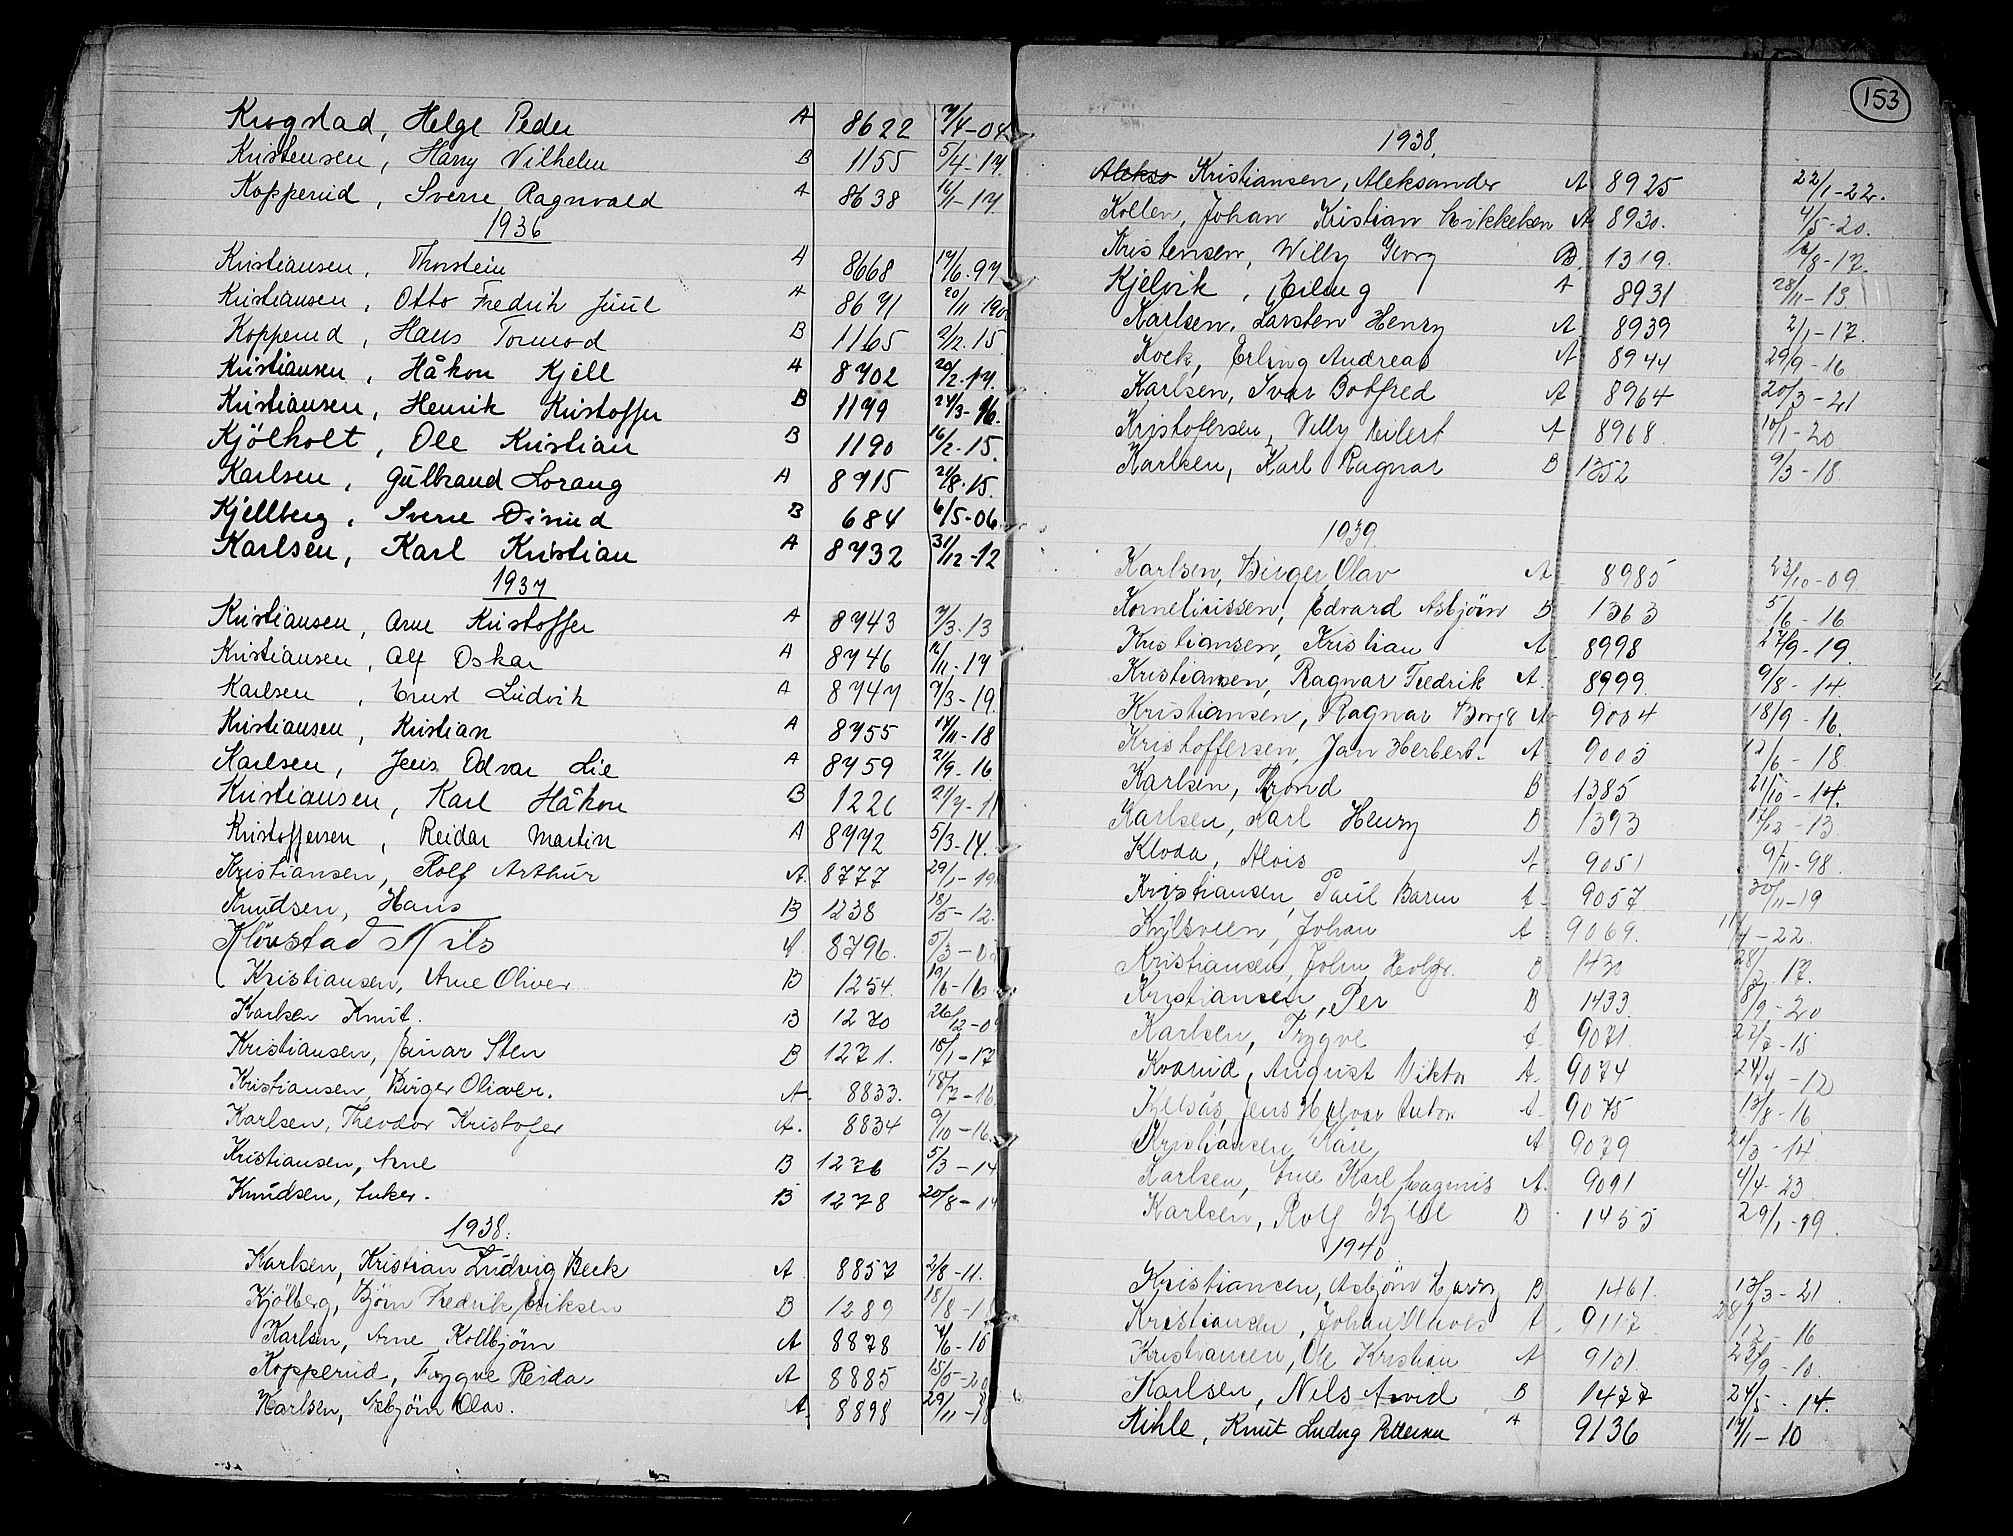 Krogstad, Helge Peder A 8622 7/4-04
Kristensen, Harry Vilhelm B 1155 5/4-17.
Kopperud, Sverre Ragnvald A 8638 16/1-17
1936
Kristiansen, Thorstein A 8668 17/6-97
Kristiansen, Otto Fredrik Juul A 8671 20/11 190
Kopperud, Hans Tormod B 1165 2/2.15
Kristiansen, Håkon Kjell A 8702 20/2.17.
Kristiansen, Henrik Kristoffer B 1179 24/3-16.
Kjölholt, Ole Kristian B 1190 16/2.15.
Karlsen, Gulbrand Lorang A 8715 21/8.15.
Kjellberg, Sverre Öivind B 684 6/5-06
Karlsen, Karl Kristian A 8732 31/12-12
1937
Kristiansen, Arne Kristoffer A 8743 7/3.13
Kristiansen, Alf Oskar A 8746 12/11-17
Karlsen, Ernst Ludvik A 8747 7/3-19.
Kristiansen, Kristian A 8755 14/11-18
Karlsen, Jens Odvar Lie A 8759 21/9-16
Kristiansen, Karl Håkon B 1226 21/7-11
Kristoffersen, Reidar Martin A 8772 5/3-14.
Kristiansen, Rolf Arthur A. 8777 29/1-19
Knudsen, Hans B 1238 18/5-12.
Klövstad Nils A. 8796. 5/3-0
Kristiansen, Arne Oliver B 1254. 19/6-16
Karlsen Knut. B 1270 26/12-09
Kristiansen, Einar Sten B 1271. 18/1-17
Kristiansen, Birger Oliver. A. 8833. 18/7-16
Karlsen, Theodor Kristofer A. 8834 9/10-16.
Kristiansen, Arne B 1276 5/3-14
Knudsen, Anker. B 1278 20/8-14
1938.
Karlsen, Kristian Ludvig Beck A. 8857 2/8-11.
Kjölberg, Björn Fredrik Eriksen B 1289 18/8-1
Karlsen, Arne Kolbjörn A 8878 7/6-15
Kopperud, Trygve Reidar A 8885 15/5-20
Karlsen, Asbjörn Olav. A. 8898 29/11-18
153
1938.
Alekso Kristiansen, Aleksander A 8925 22/1-22.
Kollen, Johan Kristian Mikkelsen A 8930. 4/5-20.
Kristensen, Willy Georg B. 1319. 12/8-17.
Kjelvik, Erling A 8931 28/11-13
Karlsen, Karsten Henry A 8939 2/1-17.
Kock, Erling Andreas A 8944 29/9-16
Karlsen, Ivar Botfred A 8964 20/3-21
Kristofersen, Villy Eilert A 8968. 10/1-20
Karlsen, Karl Ragnar B 1352 9/3-18.
1939.
Karlsen, Birger Olav A 8985 23/10-09
Korneliussen, Edvard Asbjörn B 1363 5/6-16
Kristiansen, Kristian A. 8998 27/9-19.
Kristiansen, Ragnar Fredrik A. 8999. 9/8-14.
Kristiansen, Ragnar Borge A. 9004 18/9-16.
Kristoffersen, Jan Herbert. A. 9005 12/6-18
Karlsen, Trond B 1385 21/10-14.
Karlsen, Karl Henry B 1393 17/12-13
Kloda, Alois A. 9051 9/11-98.
Kristiansen, Paul Baren A 9057 30/11-19
Kylsveen, Johan A 9069. 11/4-22.
Kristiansen, John Holger. B 1430 28/3 17.
Kristiansen, Per B 1433. 8/9-20
Karlsen, Trygve A. 9071. 22/7-15
Kvarud, August Viktor A. 9074 24/4-12
Kjelsås, Jens Halvor Anton A 9075 13/8-16
Kristiansen, Kåre A 9079 21/3-14
Karlsen, Arne Karl Magnus A. 9091 4/4-23
Karlsen, Rolf Kjell B. 1455 29/1-19.
1940.
Kristiansen, Asbjörn Harry B 1461. 13/3-21
Kristiansen, Johan A. 9117 28/12-16
Kristiansen, Ole Kristian A 9131. 23/9-10.
Karlsen, Nils Arvid B 1477 24/5-14.
Kihle, Knut Ludvig Pettersen A 9136 17/1-10